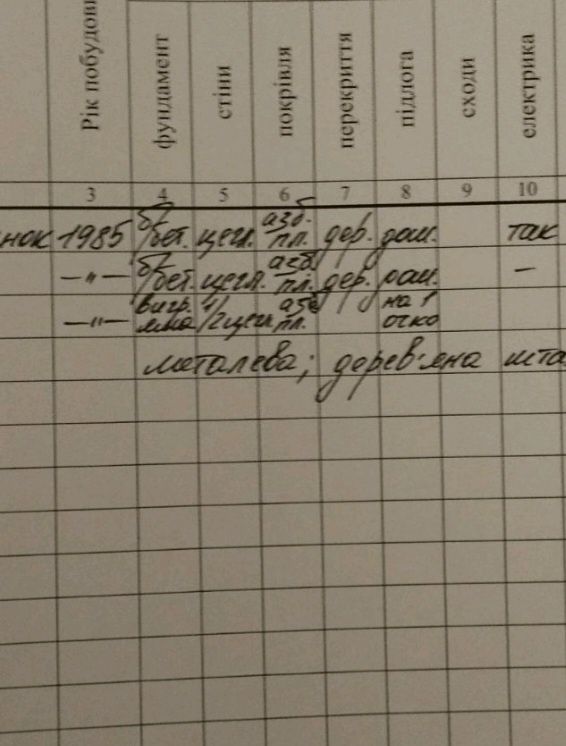 Рік побудови фундамент стіни покрівля перекриття підлога сходи електрика
3 4 5 6 7 8 9 10
нок 1985 б/бет. цегл. азб. пл. дер. дощ. так
—"— б/бет. цегл. азб. пл. дер. дощ. –
—"— вигр. яма 1/2 цегл. азб пл. на 1 очко
металева; дерев'яна шта